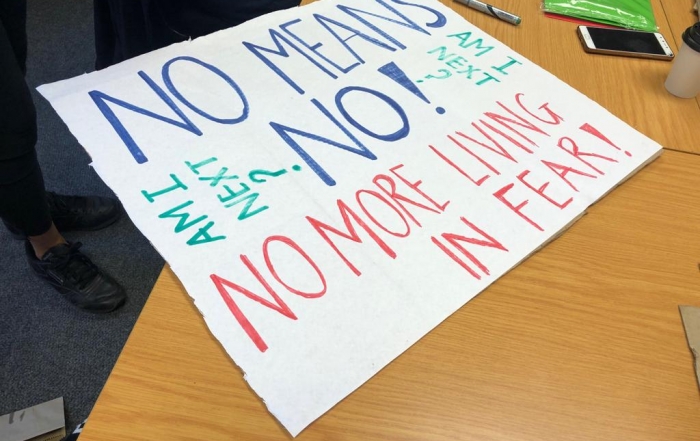 NO MEANS
NO!
AM I
NEXT
?
AM I
NEXT
?
NO MORE LIVING
IN FEAR!